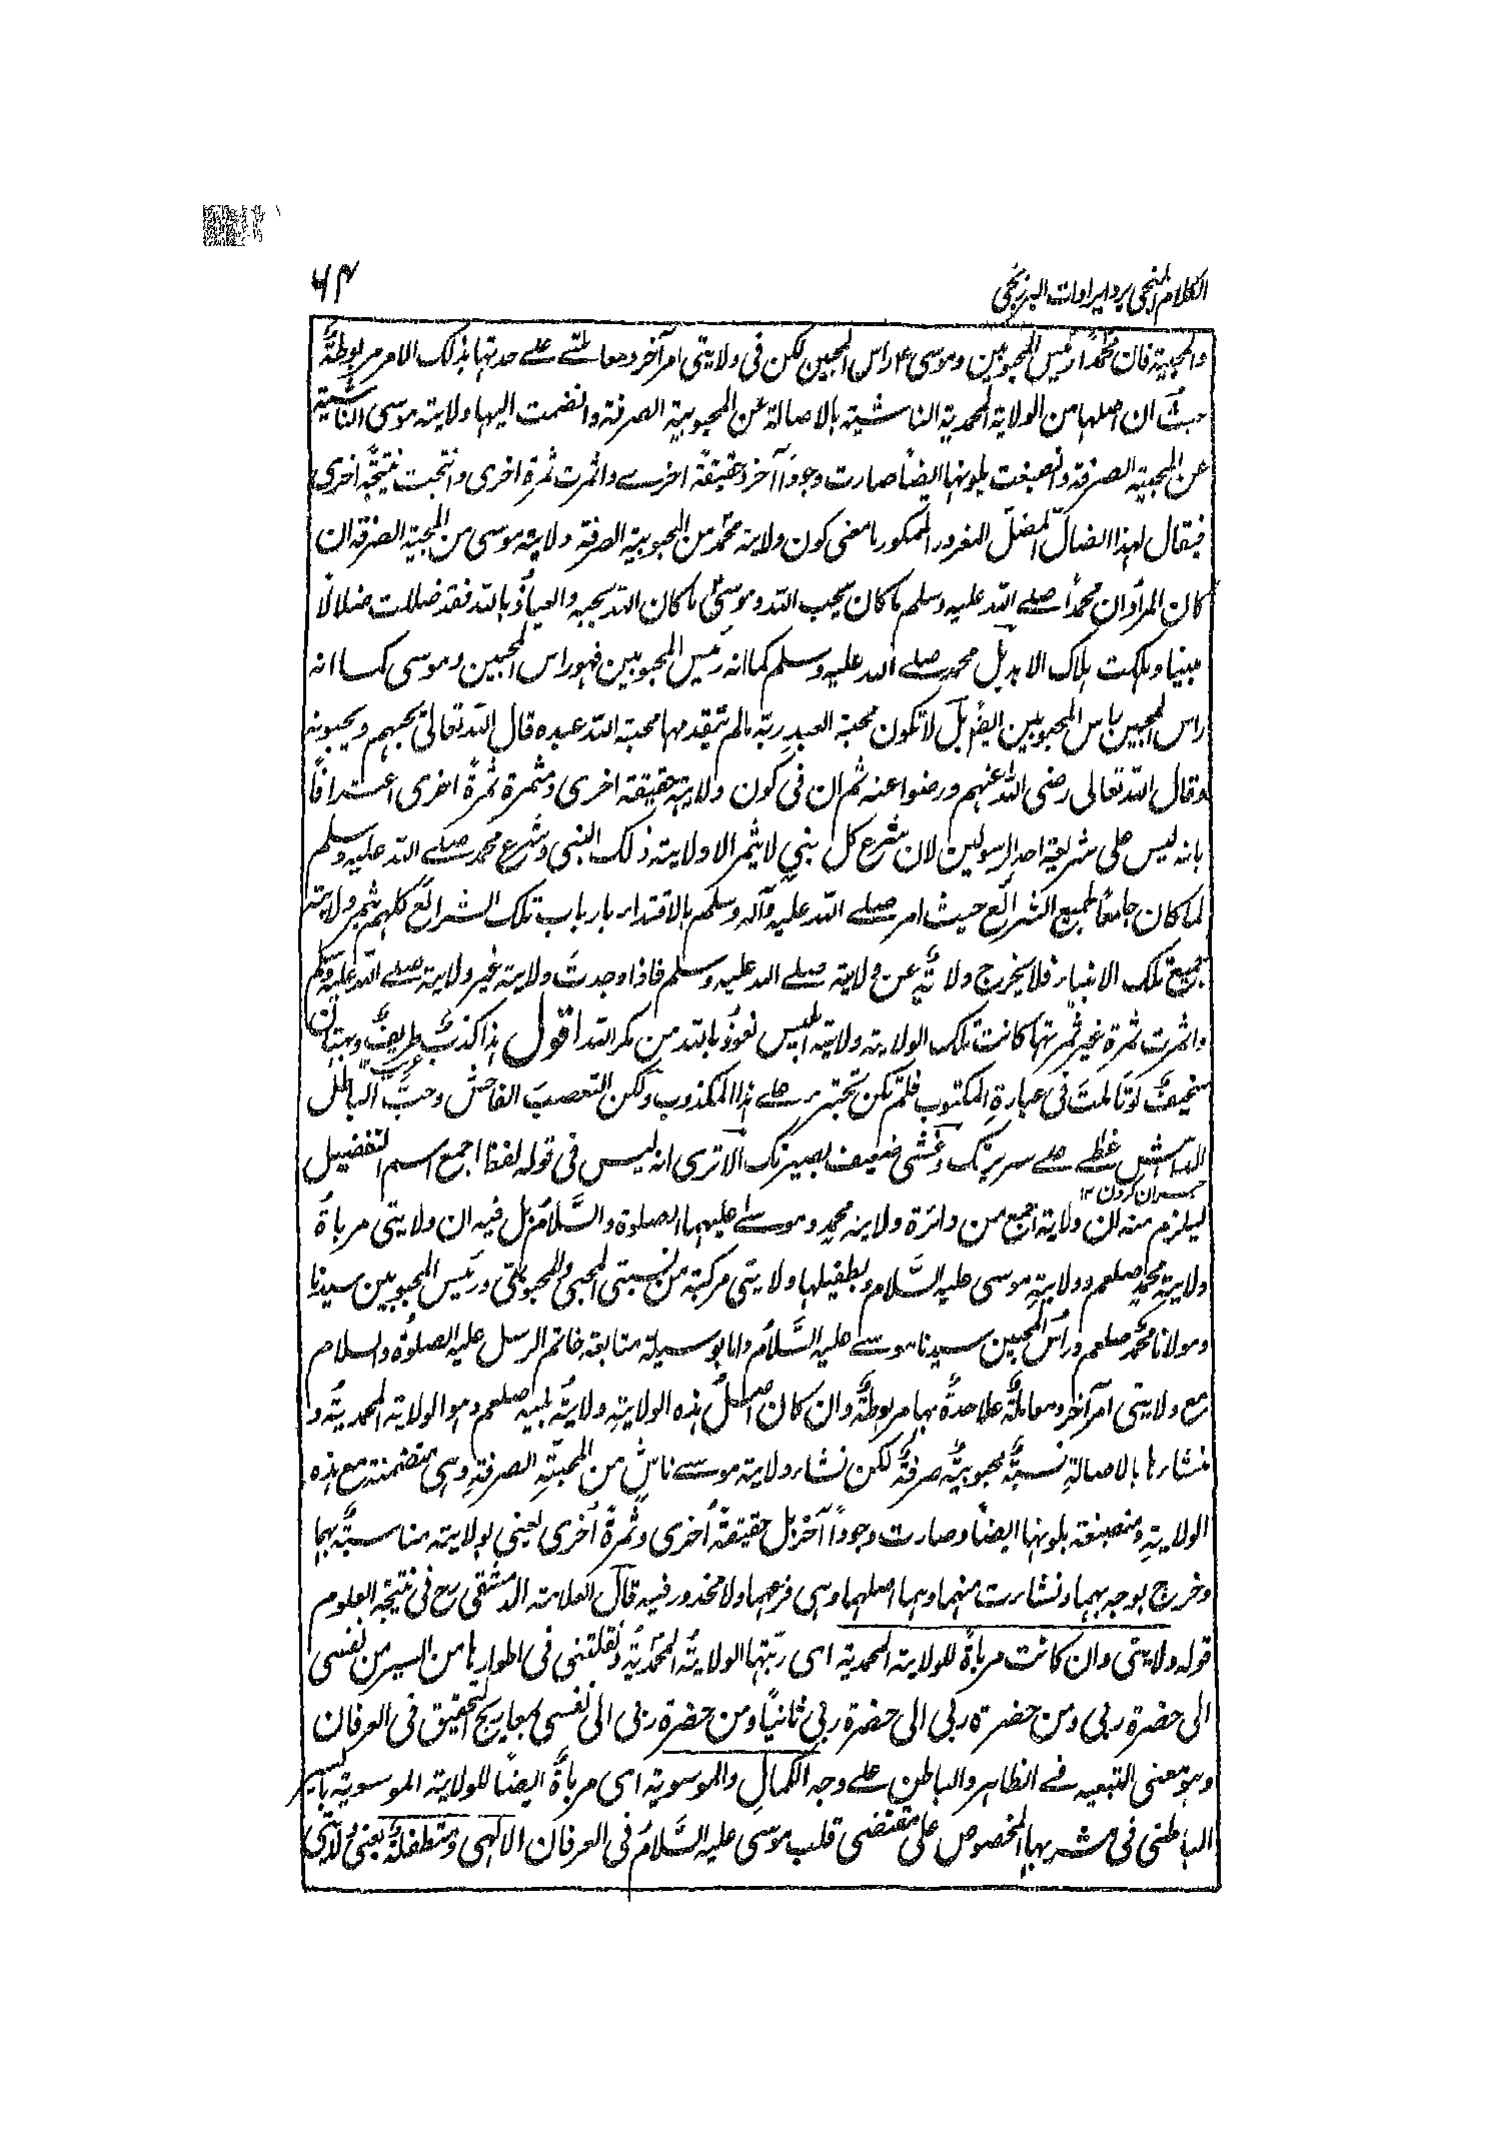 الكلام المنجى برد ايرادات البرزنجى
۶۴
والمحبية فان محمدا رئيس المحبوبين وموسى ع راس المحبين لكن فى ولايتى امر آخر ومعاملتے علے حدتها بذلك الامر مربوطةٌ
حيث ان اصلها من الولاية المحمدية الناشية بالاصالة عن المحبوبية الصرفة وانضمت اليها ولاية موسى الناشية
عن المحبية الصرفة وانصبغت بلونها ايضًا صارت وجودًا آخر وحقيقةً اخرے واثمرت ثمرة اخرى وانتجت نتيجةً اخرى
فيقال لهذا الضالّ المضلّ المغرور الممكور ما معنى كون ولاية محمد من المحبوبية الصرفة وولاية موسى من المحبية الصرفة ان
كان المراد ان محمداً صلے الله عليه وسلم ما كان يحب الله وموسىٰ ما كان الله يحبه والعياذ بالله فقد ضللت ضلالًا
مبينا وهلكت هلاك الابد بل محمد صلے الله عليه وسلم كما انه رئيس المحبوبين فهو راس المحبين وموسى كما انه
راس المحبين راس المحبوبين ايضًا بل لا تكون محبة العبد ربّه مالم تتقدمها محبة الله عبده قال الله تعالىٰ يحبهم ويحبونه
وقال الله تعالى رضى الله عنهم ورضوا عنه ثم ان فى كون ولايته حقيقة اخرى ومثمرة ثمرةً اخرى اعترافًا
بانه ليس على شريعة احد الرسولين لان شرع كل نبي لا يثمر الا ولاية ذلك النبى وشرع محمد صلے الله عليه وسلم
لما كان جامعاً لجميع الشرائع حيث امر صلے الله عليه وآله وسلم بالاقتداء بارباب تلك الشرائع كلهم يثمر ولاية
جميع تلك الانبياء فلا يخرج ولايةٌ عن ولايته صلے الله عليه وسلم فاذا وجدتَ ولاية غير ولايته صلے الله عليه وسلم
واثمرت ثمرة غير ثمرتها كانت تلك الولاية ولاية ابليس نعوذ بالله من مكر الله اقول هذا كذبٌ طريفٌ وبهتان
سخيفٌ لو تاملتَ فى عبارة المكتوب فلم تكن تجترء علے هذا المكذوب ولكن التعصبَ الفاحشَ وحبَّ الباطل
غطے علے سريرتك وغشى ضعيف بصيرتك الا ترى انه ليس فى قوله لفظ اجمع اسم التفضيل
ليلزم منه ان ولايته اجمع من دائرة ولاية محمد وموسے عليهما الصلوة والسَّلام بل فيه ان ولايتى مرباةُ
ولايةِ محمدٍ صلعم وولايةِ موسى عليه السَّلام وبطفيلها ولايتى مركبة من نسبتى المحبى والمحبوبى ورئيس المحبوبين سيدنا
ومولانا محمد صلعم وراس المحبين سيدنا موسے عليه السَّلام وانا بوسيلة متابعة خاتم الرسل عليه الصلوة والسلام
مع ولايتى امر آخر ومعاملةٌ علاحدةٌ بها مربوطةٌ وان كان اصلُ هذه الولايةِ ولايةَ نبيه صلعم وهو الولاية المحمديةُ و
منشاءها بالاصالةِ نسبةٌ محبوبيةٌ صرفةٌ لكن نشاء ولاية موسے ناشٍ من المحبّيةِ الصرفةِ وهى متضمنة مع هذه
الولايةِ ومنصبغة بلونها ايضًا وصارت وجودًا آخر بل حقيقةً اُخرى وثمرةً اُخرى يعنى لولايته مناسبةٌ بهما
وخرج بوجه بهما ونشاءت منهما وهما اصلهما وهى فرعهما ولا محذور فيه قال العلامة الدمشقى رح فى نتيجة العلوم
قوله ولايتى وان كانت مرباةً للولاية المحمدية اى ربّتها الولايةُ المحمّديةُ ونقلتنى فى اطوارها من السير من نفسى
الى حضرة ربى ومن حضرة ربى الى حضرة ربى ثانيًا ومن حضرة ربى الى نفسى بمعاريج التحقيق فى العرفان
وهو معنى التبعيه فے الظاهر والباطن علے وجه الكمالِ والموسوية اى مرباةٌ ايضًا للولاية الموسوية بالسير
الباطنى فى مشربها المخصوص على مقتضى قلب موسى عليه السَّلام فى العرفان الالهى ومتطفلةٌ يعنى ولايتى